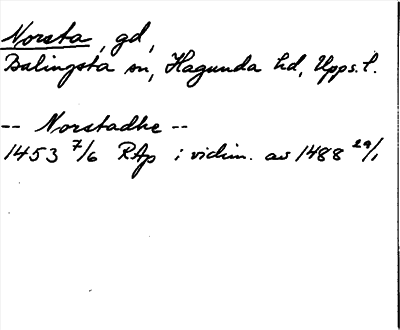 Norsta, gd,
Balingsta sn, Hagunda hd, Upps. l.
-- Norstadhe --
1453 7/6 RAp i vidim. av 1488 29/1